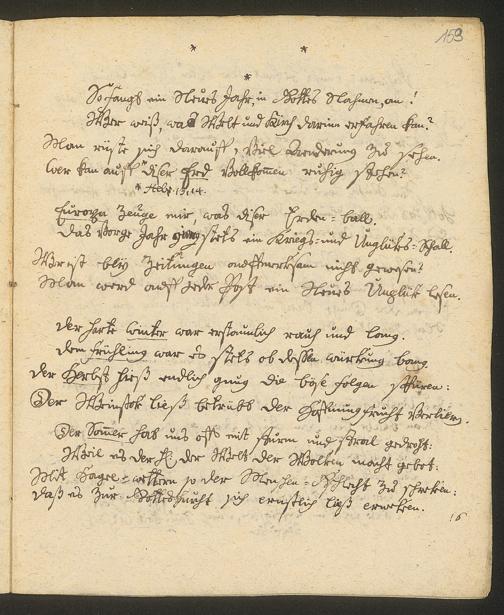 159
* *
*
So fangt ein Neues Jahr, in Gottes Nahmen, an!
Wer weiß, was Welt und Kirch darinn erfahren kan?
Man rüste sich darauff, Viel Aenderung zu sehen.
Wer kan auff * diser Erd Vollkomen ruhig stehen?
* Hebr. 13, 14.
Europa Zeuge mir, was diser Erden-ball,
Das Vorge Jahr stets ein Kriegs- und Unglüks-Schall.
Wer ist bey Zeitungen auffmerksam nicht gewesen?
Man werd auff jeder Post ein Neues Unglük lesen.
Der harte Winter war erstaunlich rauh und lang.
Dem Frühling war es stets ob dessen würkung bang.
Der Herbst ließ endlich gnug die böse folgen spüren:
Der Weinstok ließ betrübt der Hoffnung frucht Verliern.
Der Somer hat uns offt mit sturm und stral gedroht:
Weil es der H. der Welt der Wolken macht gebot:
Mit Hagel-wettern so der Menschen zu schreken:
Daß es zur Gottesfurcht sich ernstlich ließ erweken.